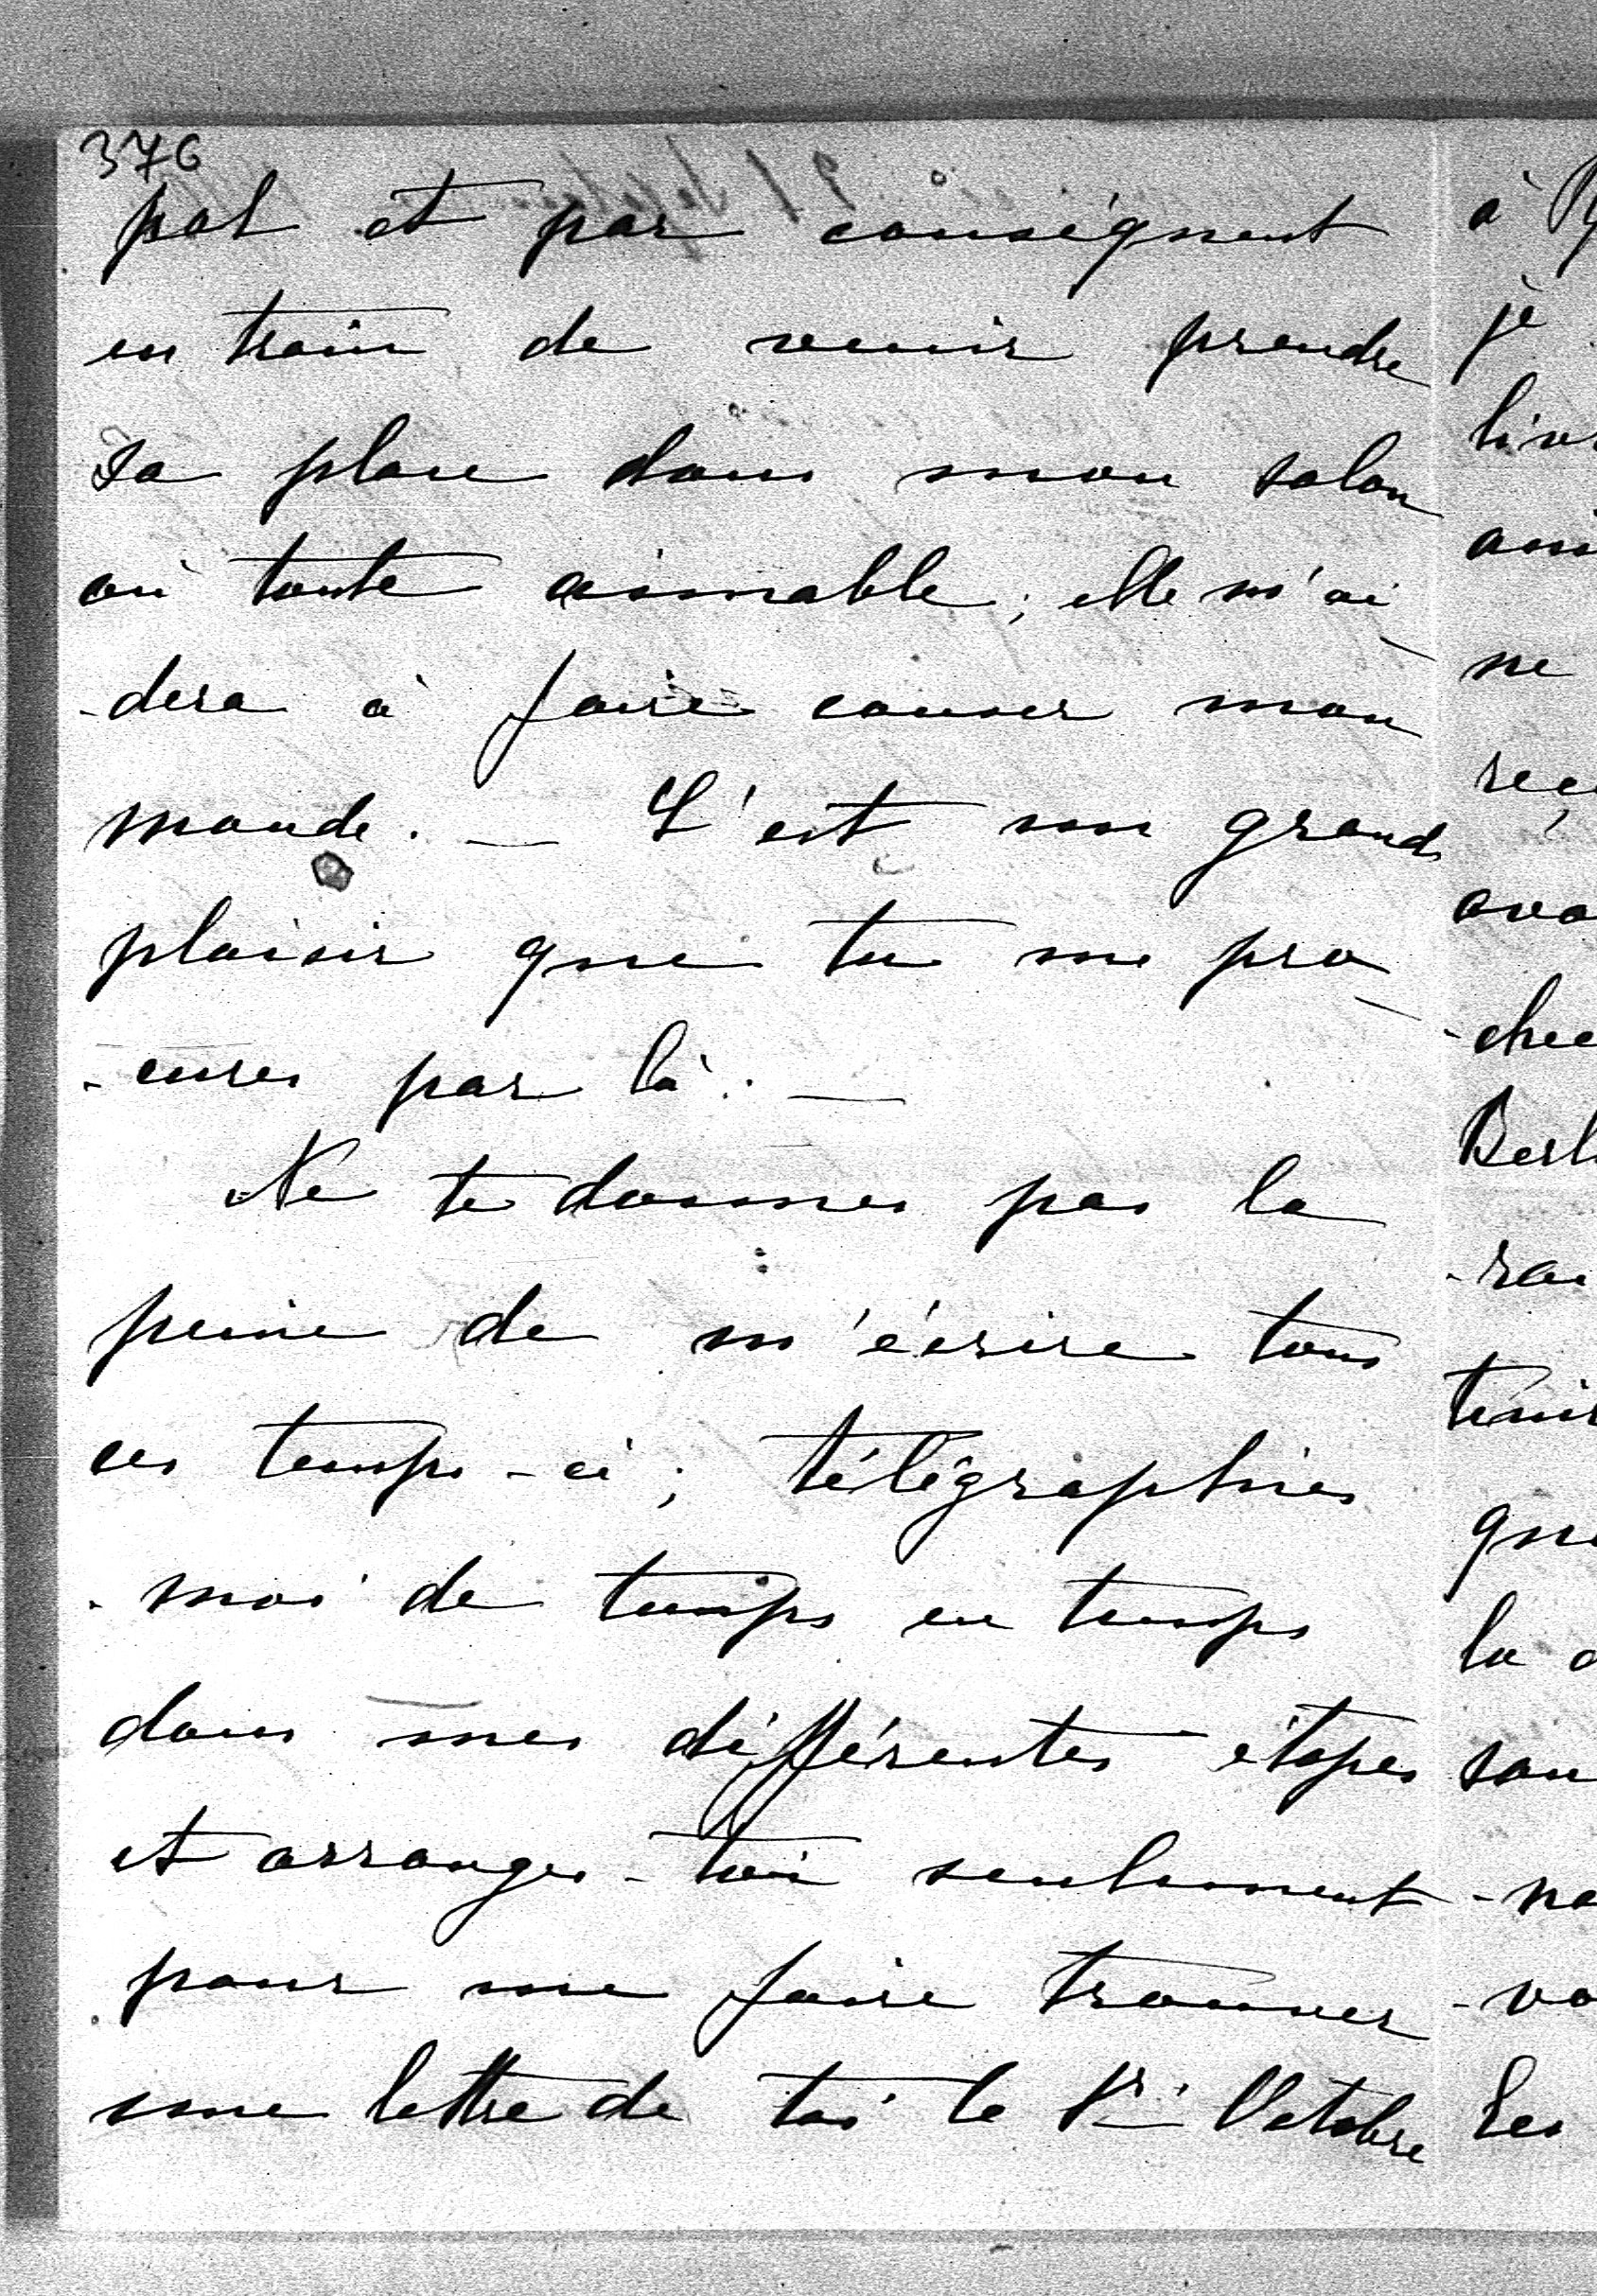 376
pol et par conséquent
en train de venir prendre
sa place dans mon salon
où toute aimable ; elle m'ai
-dera à faire causer mon
monde. — C'est un grand
plaisir que tu me pro
-cures par là. —
Ne te donnes pas la
peine de m'écrire tous
ces temps-ci ; télégraphies
-moi de temps en temps
dans mes différentes étapes
et arranges-toi seulement
pour me faire trouver
une lettre de toi le 1er Octobre
à
je
ne
Les